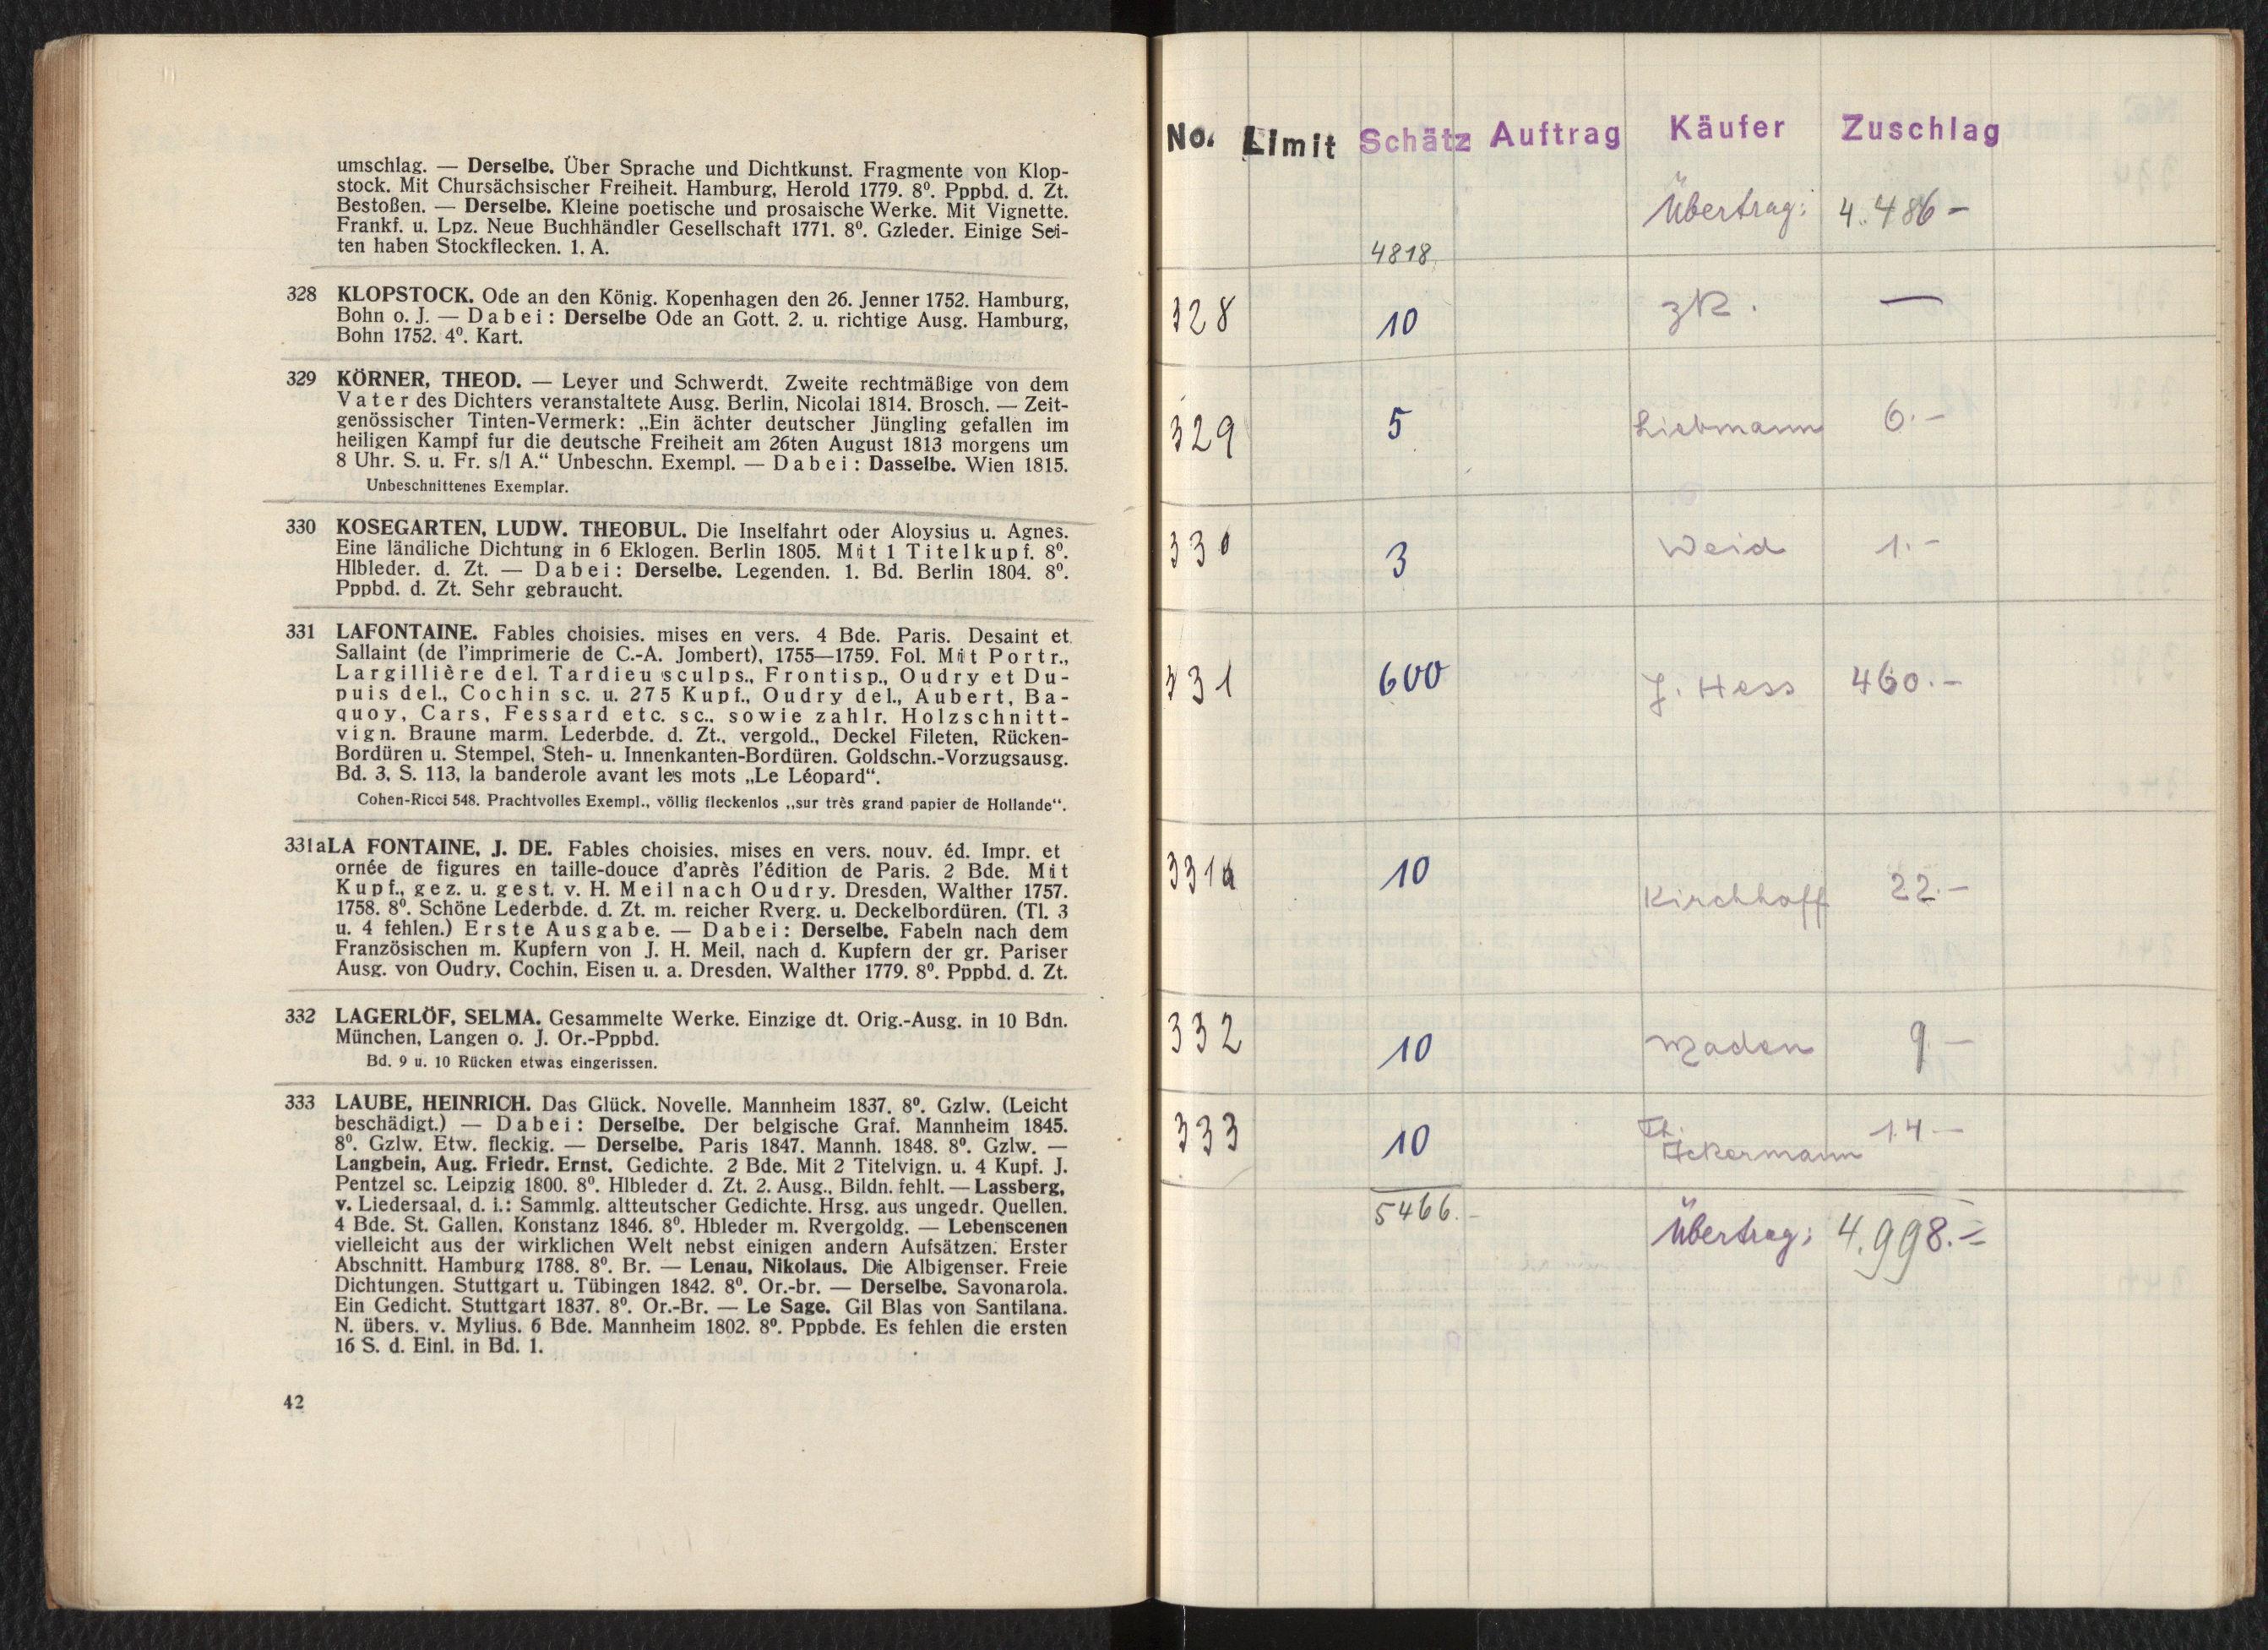 umschlag. — Derselbe. Über Sprache und Dichtkunst. Fragmente von Klop-
stock. Mit Chursächsischer Freiheit. Hamburg, Herold 1779. 8⁰. Pppbd. d. Zt.
Bestoßen. — Derselbe. Kleine poetische und prosaische Werke. Mit Vignette.
Frankf. u. Lpz. Neue Buchhändler Gesellschaft 1771. 8⁰. Gzleder. Einige Sei-
ten haben Stockflecken. 1. A.
328 KLOPSTOCK. Ode an den König. Kopenhagen den 26. Jenner 1752. Hamburg,
Bohn o. J. — Dabei: Derselbe Ode an Gott. 2. u. richtige Ausg. Hamburg,
Bohn 1752. 4⁰. Kart.
329 KÖRNER, THEOD. — Leyer und Schwerdt. Zweite rechtmäßige von dem
Vater des Dichters veranstaltete Ausg. Berlin, Nicolai 1814. Brosch. — Zeit-
genössischer Tinten-Vermerk: „Ein ächter deutscher Jüngling gefallen im
heiligen Kampf fur die deutsche Freiheit am 26ten August 1813 morgens um
8 Uhr. S. u. Fr. s/l A.“ Unbeschn. Exempl. — Dabei: Dasselbe. Wien 1815.
Unbeschnittenes Exemplar.
330 KOSEGARTEN, LUDW. THEOBUL. Die Inselfahrt oder Aloysius u. Agnes.
Eine ländliche Dichtung in 6 Eklogen. Berlin 1805. Mit 1 Titelkupf. 8⁰.
Hlbleder. d. Zt. — Dabei: Derselbe. Legenden. 1. Bd. Berlin 1804. 8⁰.
Pppbd. d. Zt. Sehr gebraucht.
331 LAFONTAINE. Fables choisies. mises en vers. 4 Bde. Paris. Desaint et
Sallaint (de l'imprimerie de C.-A. Jombert), 1755—1759. Fol. Mit Portr.,
Largillière del. Tardieu sculps., Frontisp., Oudry et Du-
puis del., Cochin sc. u. 275 Kupf., Oudry del., Aubert, Ba-
quoy, Cars, Fessard etc. sc., sowie zahlr. Holzschnitt-
vign. Braune marm. Lederbde. d. Zt., vergold., Deckel Fileten, Rücken-
Bordüren u. Stempel, Steh- u. Innenkanten-Bordüren. Goldschn.-Vorzugsausg.
Bd. 3, S. 113, la banderole avant les mots „Le Léopard“.
Cohen-Ricci 548. Prachtvolles Exempl., völlig fleckenlos „sur très grand papier de Hollande“.
331a LA FONTAINE, J. DE. Fables choisies, mises en vers. nouv. éd. Impr. et
ornée de figures en taille-douce d'après l'édition de Paris. 2 Bde. Mit
Kupf., gez. u. gest. v. H. Meil nach Oudry. Dresden, Walther 1757.
1758. 8⁰. Schöne Lederbde. d. Zt. m. reicher Rverg. u. Deckelbordüren. (Tl. 3
u. 4 fehlen.) Erste Ausgabe. — Dabei: Derselbe. Fabeln nach dem
Französischen m. Kupfern von J. H. Meil, nach d. Kupfern der gr. Pariser
Ausg. von Oudry, Cochin, Eisen u. a. Dresden, Walther 1779. 8⁰. Pppbd. d. Zt.
332 LAGERLÖF, SELMA. Gesammelte Werke. Einzige dt. Orig.-Ausg. in 10 Bdn.
München, Langen o. J. Or.-Pppbd.
Bd. 9 u. 10 Rücken etwas eingerissen.
333 LAUBE, HEINRICH. Das Glück. Novelle. Mannheim 1837. 8⁰. Gzlw. (Leicht
beschädigt.) — Dabei: Derselbe. Der belgische Graf. Mannheim 1845.
8⁰. Gzlw. Etw. fleckig. — Derselbe. Paris 1847. Mannh. 1848. 8⁰. Gzlw. —
Langbein, Aug. Friedr. Ernst. Gedichte. 2 Bde. Mit 2 Titelvign. u. 4 Kupf. J.
Pentzel sc. Leipzig 1800. 8⁰. Hlbleder d. Zt. 2. Ausg., Bildn. fehlt. — Lassberg,
v. Liedersaal, d. i.: Sammlg. altteutscher Gedichte. Hrsg. aus ungedr. Quellen.
4 Bde. St. Gallen, Konstanz 1846. 8⁰. Hbleder m. Rvergoldg. — Lebenscenen
vielleicht aus der wirklichen Welt nebst einigen andern Aufsätzen. Erster
Abschnitt. Hamburg 1788. 8⁰. Br. — Lenau, Nikolaus. Die Albigenser. Freie
Dichtungen. Stuttgart u. Tübingen 1842. 8⁰. Or.-br. — Derselbe. Savonarola.
Ein Gedicht. Stuttgart 1837. 8⁰. Or.-Br. — Le Sage. Gil Blas von Santilana.
N. übers. v. Mylius. 6 Bde. Mannheim 1802. 8⁰. Pppbde. Es fehlen die ersten
16 S. d. Einl. in Bd. 1.
42
No. Limit Schätz Auftrag Käufer Zuschlag
Übertrag: 4.486 –
4818
328 10 zR. —
329 5 Liebmann 6.–
330 3 Weid 1.–
331 600 J. Hess 460.–
331a 10 Kirchhoff 22.–
332 10 Maden 9.–
333 10 Th. Ackermann 14.–
5466.–
Übertrag: 4.998.–